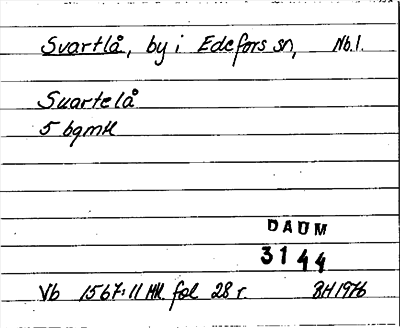 Svartlå, by i Edefors sn, Nb.l.
Suartelå
5 bgmH
DAUM
3144
Vb 1567:11 HH. fol 28 r. BH1976